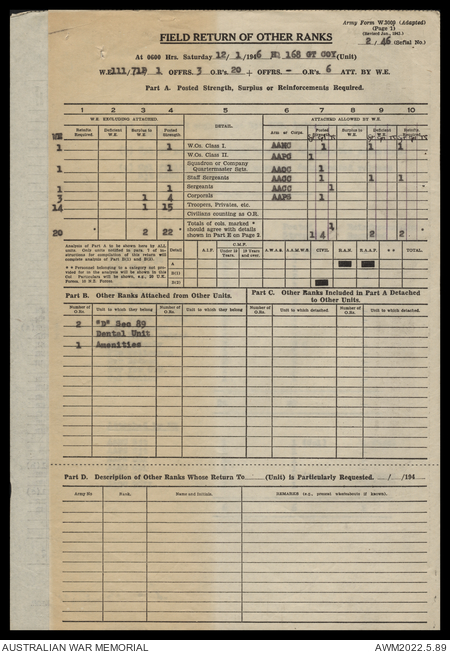 Army Form W.3009 (Adapted)
(Page 1)
(Revised Jan., 1943.)
2 / 46 (Serial No.)
FIELD RETURN OF OTHER RANKS
At 0600 Hrs. Saturday 12 / 1 /1946 168 GT COY (Unit)
W.E. 111/71 1 OFFRS. 3 O.R's. 20 + OFFRS. - O.R's. 6 ATT. BY W.E.
Part A. Posted Strength, Surplus or Reinforcements Required.
1 2 3 4 5 6 7 8 9 10
W.E. EXCLUDING ATTACHED. ATTACHED ALLOWED BY W.E.
Reinfts Required. Deficient W.E. Surplus to W.E. Posted Strength. DETAIL. Arm or Corps. Posted Strength. Surplus to W.E. Deficient W.E. Reinfts Required.
1 1 W.Os. Class I. AAMC 1 1 1
W.Os. Class II. AAPC 1
1 Squadron or Company Quartermaster Sgts. AAOC 1
Staff Sergeants AACC 1 1 1
1 1 Sergeants AACC 1
3 1 4 Corporals AAPS 1
14 1 15 Troopers, Privates, etc.
Civilians counting as O.R.
20 * 2 22 * Totals of cols. marked * should agree with details shown in Part E on Page 2. 1 4 1 2 2
Analysis of Part A to be shown here by ALL units.
Detail A.I.F. C.M.F. Under 19 Years. 19 Years and over. A.W.A.S. A.A.M.W.S. CIVIL R.A.N. R.A.A.F. * * TOTAL.
A
B(i)
B(ii)
Part B. Other Ranks Attached from Other Units.
Part C. Other Ranks Included in Part A Detached to Other Units.
Number of O.Rs. Unit to which they belong Number of O.Rs. Unit to which they belong Number of O.Rs. Unit to which detached. Number of O.Rs. Unit to which detached.
2 "D" Sec 89
Dental Unit
1 Amenities
Part D. Description of Other Ranks Whose Return To (Unit) is Particularly Requested. / /194
Army No Rank. Name and Initials. REMARKS (e.g., present whereabouts if known).
AUSTRALIAN WAR MEMORIAL
AWM2022.5.89